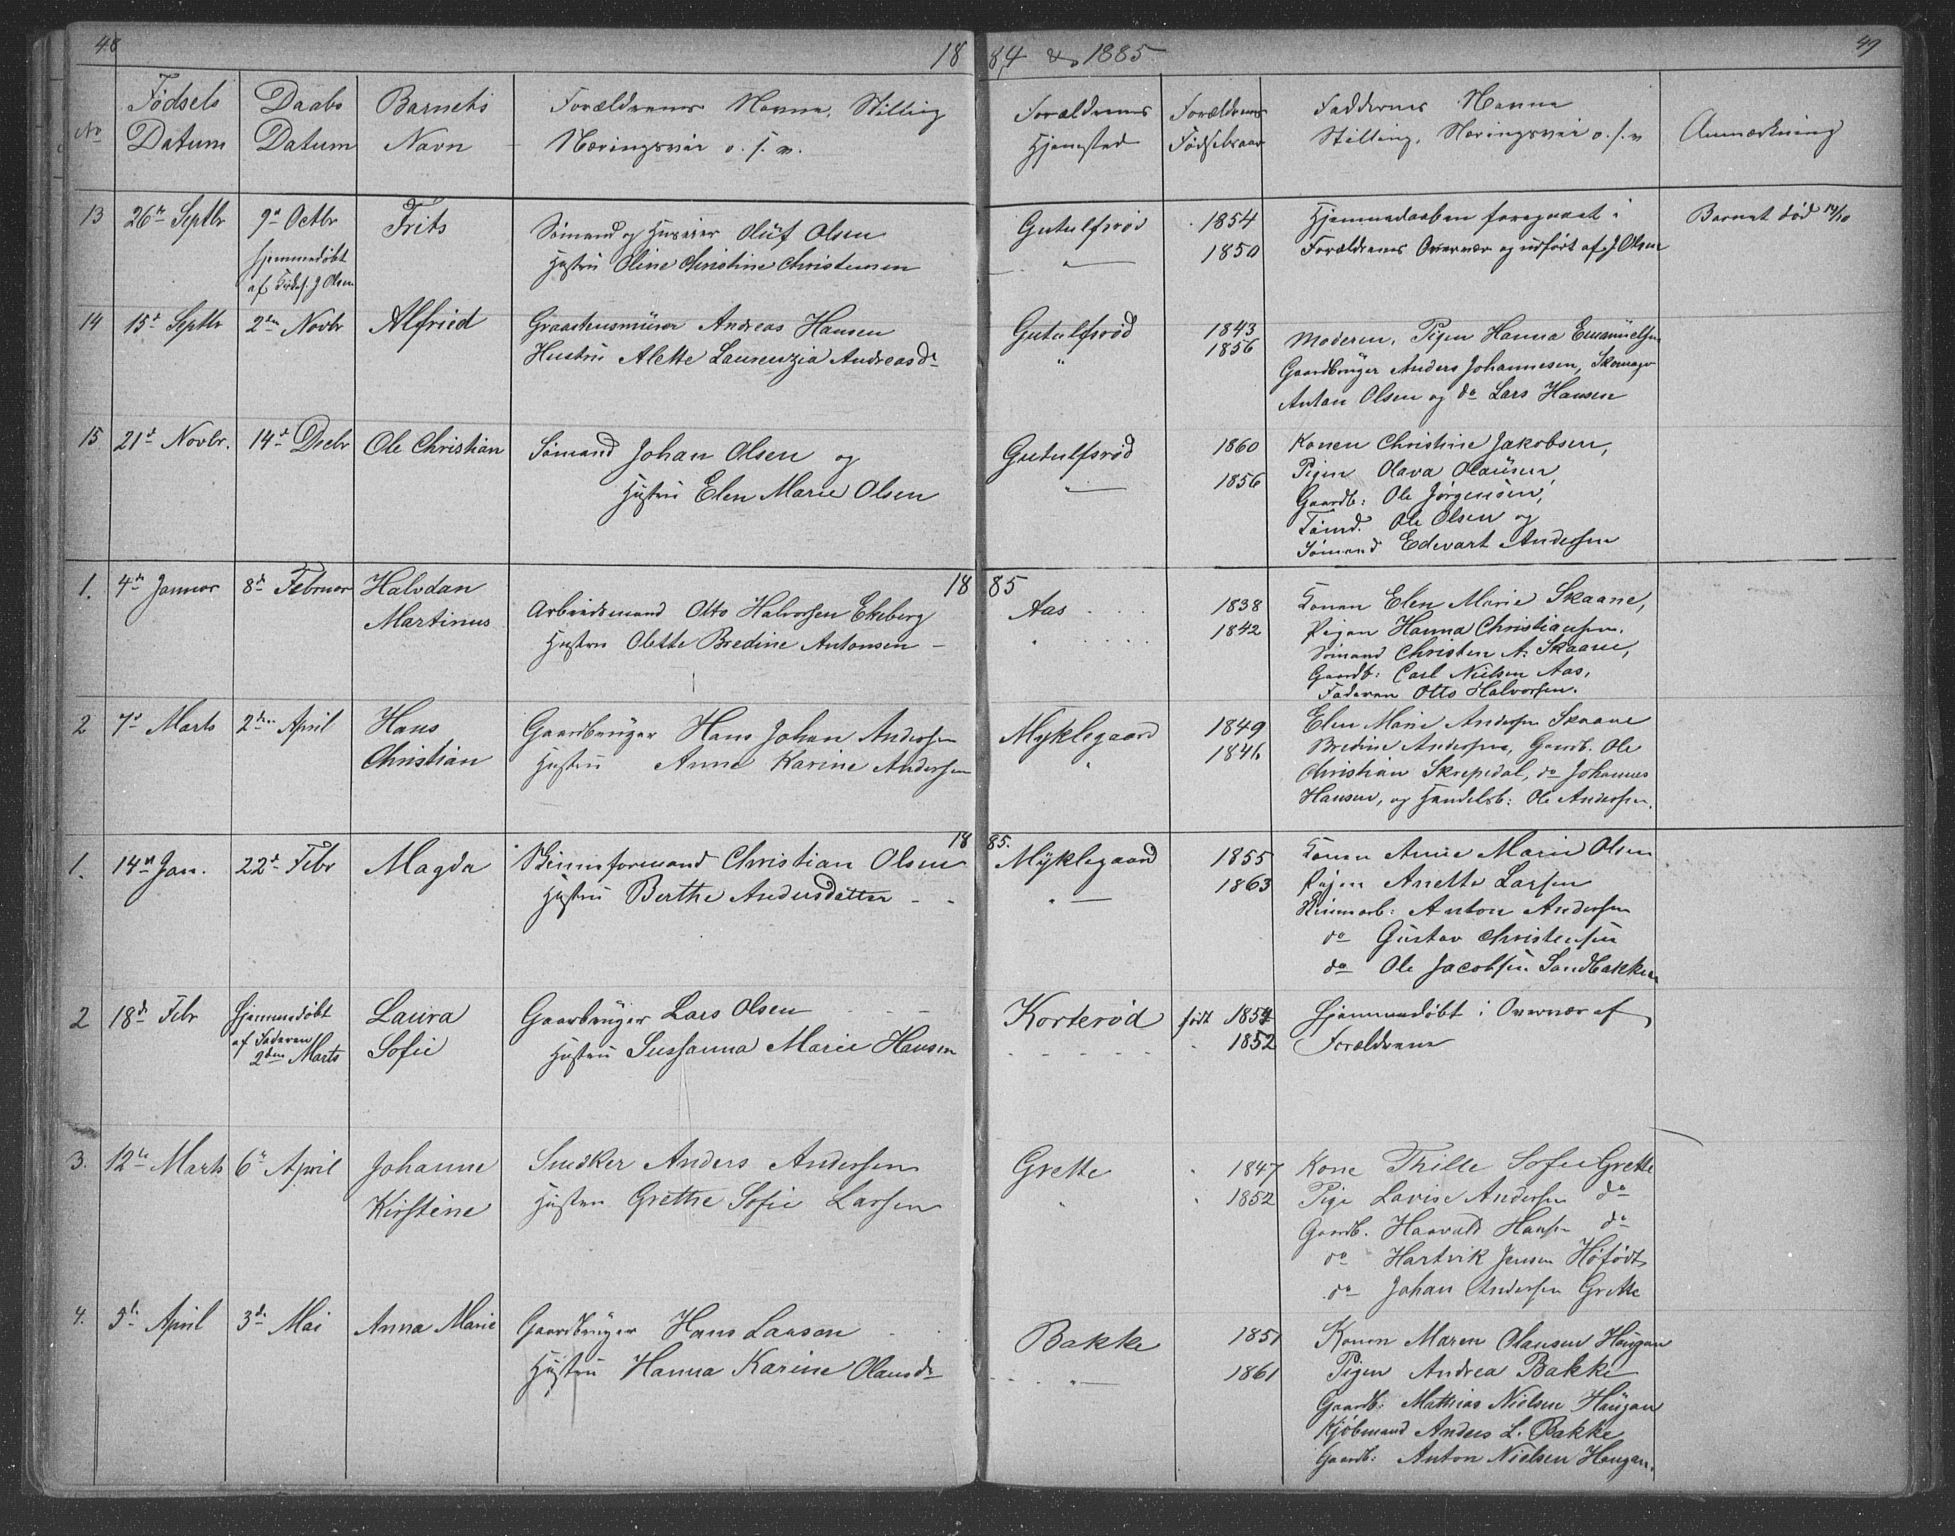 48
1884 & 1885
49
No
Fødsels Datum
Daabs Datum
Barnets Navn
Forældrenes Navne, Stilling
Næringsvei o. s. v.
Forældrenes Hjemsted
Forældrenes Fødselsaar
Faddernes Navne
Stilling, Næringsvei o. s. v
Anmærkning
13 26de Septbr 9de Octbr Frits
hjemmedøbt
af J. Olsen
Sømand og Husejer Oluf Olsen
Hustru Oline Christine Christensen
Gutulfsrød 1854
1850
Hjemmedaaben foregaaet i
Forældrenes Overvær og udført af J Olsen
Barnet død 12/10
14 15de Septbr 2den Novbr Alfried
Graastensmürer Andreas Hansen
Hustru Alette Laurenzia Andreasdr
Gutulfsrød 1843
" 1856
Moderen, Pigen Hanna Emanüelsen
Gaardbrüger Anders Johannesen, Skomager
Anton Olsen og do Lars Hansen
15 21de Novbr. 14de Decbr Ole Christian
Sømand Johan Olsen og
Hustru Elen Marie Olsen
Gutulfsrød 1860
" 1856
Konen Christine Jakobsen,
Pigen Olava Olaüsen,
Gaardb: Ole Jørgensen,
Tømd. Ole Olsen og
Sømand Edevart Andersen
1885
1. 4de Januar 8de Februar Halvdan
Martinus
Arbeidsmand Otto Halvorsen Ekeberg
Hustru Olette Bredine Antonsen
Aas 1838
" 1842
Konen Elen Marie Skaane,
Pigen Hanna Christiansen.
Sømand Christen A. Skaane,
Gaardb: Carl Nielsen Aas,
Faderen Otto Halvorsen.
2 7de Marts 2den April Hans
Christian
Gaardbrüger Hans Johan Andersen
Hustru Anne Karine Andersen
Myklegaard 1849
" 1846
Elen Marie Andersen Skaane
Bredine Andersen, Gaardb. Ole
Christian Skrepidal, do Johannes
Hansen, og Handelsb: Ole Andersen.
1885.
1. 14de Jan. 22de Febr Magda
Skinneformand Christian Olsen
Hustru Berthe Andersdatter
Myklegaard 1855
" 1863
Konen Anne Marie Olsen
Pigen Anette Larsen
Skinnearb: Anton Andersen
do Gustav Christensen
do Ole Jacobsen Sandbakken
2 18de Febr Hjemmedøbt Laura
af Faderen Sofie
2den Marts
Gaarbrüger Lars Olsen
Hustru Sussanna Marie Hansen
Korterød født 1854
" 1852
Hjemmedøbt i Overvær af
Forældrene
3. 12te Marts 6te April Johanne
Kirstine
Snedker Anders Andersen
Hustru Grethe Sofie Larsen
Grette 1847
" 1852
Kone Thille Sofie Grette
Pige Lovise Andersen do
Gaardb. Haavald Hansen do
do Hartvik Jensen Høfødt
do Johan Andersen Grette
4. 5te April 3de Mai Anna Marie
Gaardbrüger Hans Larsen
Hustru Hanna Karine Olausdr
Bakke 1851
" 1861
Konen Maren Olausen Haügan
Pigen Andrea Bakke
Gaardb: Mathias Nielsen Haügan
Kjøbmand Anders L. Bakke
Gaardb: Anton Nielsen Haugan.